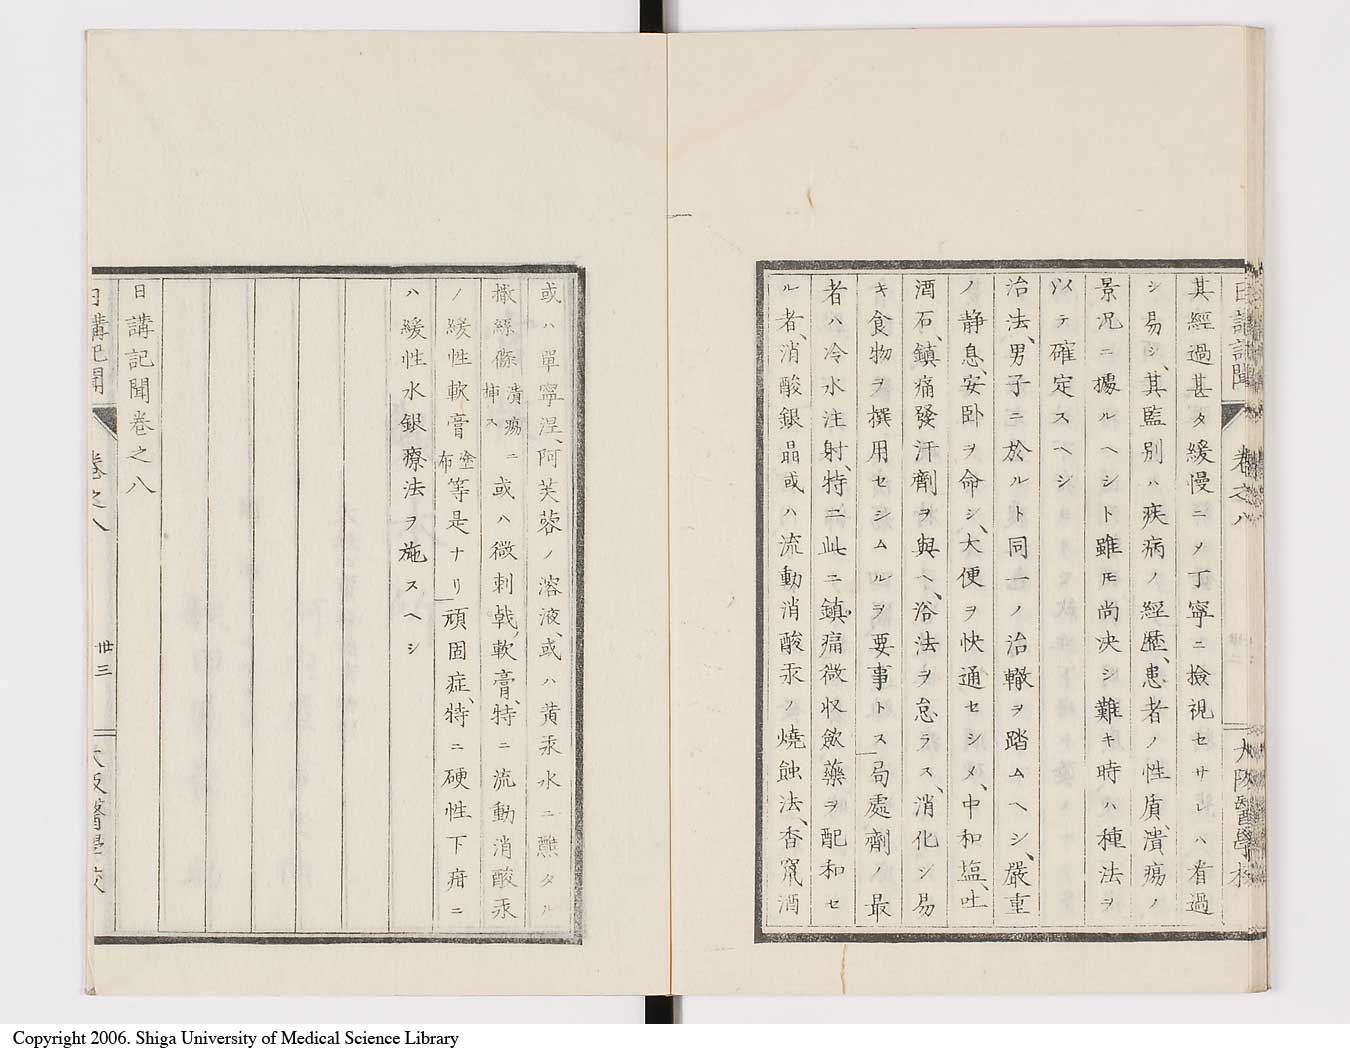 日講記聞 卷之八 大阪醫學校
其經過甚タ緩慢ニメ丁寧ニ撿視セサレハ看過
シ易シ、其監別ハ疾病ノ經歷、患者ノ性質、潰瘍ノ
景況ニ據ルヘシト雖𪜈尚决シ難キ時ハ種法ヲ
以テ確定スヘシ
治法、男子ニ於ルト同一ノ治轍ヲ踏ムヘシ、嚴重
ノ静息、安卧ヲ命シ、大便ヲ快通セシメ、中和塩、吐
酒石、鎮痛發汗劑ヲ與ヘ、浴法ヲ怠ラス、消化シ易
キ食物ヲ撰用セシムルヲ要事トス局處劑ノ最
者ハ冷水注射、特ニ此ニ鎮痛微収飲藥ヲ配和セ
ル者、消酸銀晶或ハ流動消酸汞ノ燒蝕法、香竄酒
或ハ單寧涅、阿芙蓉ノ溶液、或ハ黄汞水ニ蘸タル
撒綵條潰瘍ニ挿ス或ハ微刺戟軟膏、特ニ流動消酸汞
ノ緩性軟膏塗布等是ナリ頑固症、特ニ硬性下疳ニ
ハ緩性水銀療法ヲ施スヘシ
日講記聞卷之八
日講記聞 卷之八 丗三 大阪醫學校
Copyright 2006. Shiga University of Medical Science Library